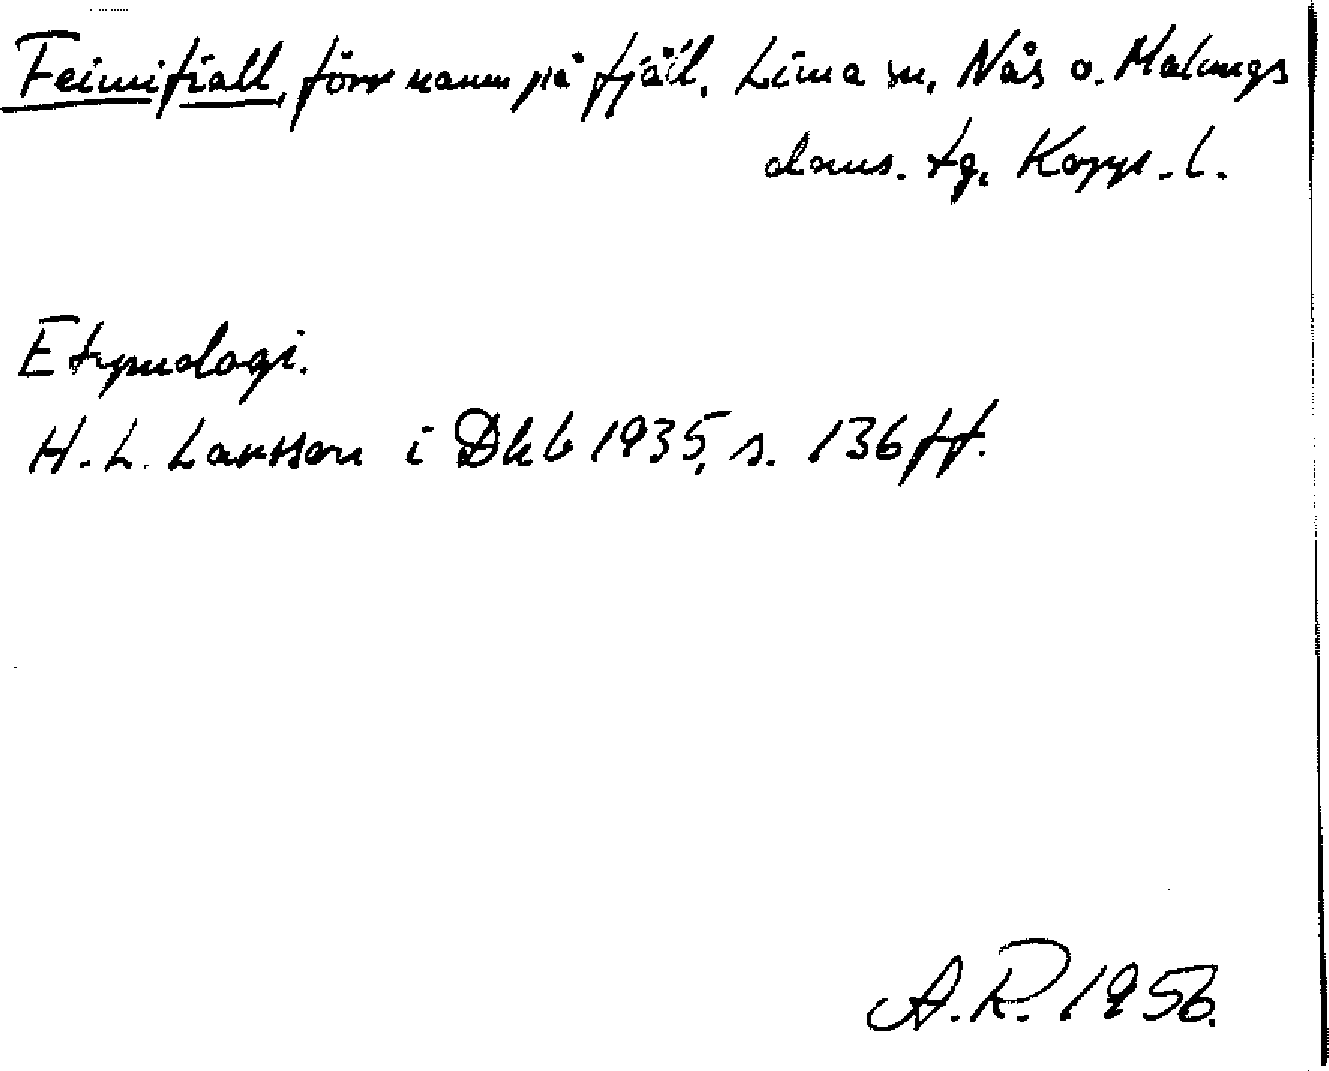 Feimifiall, förr namn på fjäll. Lima sn, Nås o. Malungs
doms. tg, Kopp. l.
Etymologi.
H. L. Larsson i Dhb 1935, s. 136 ff.
A.R. 1956.